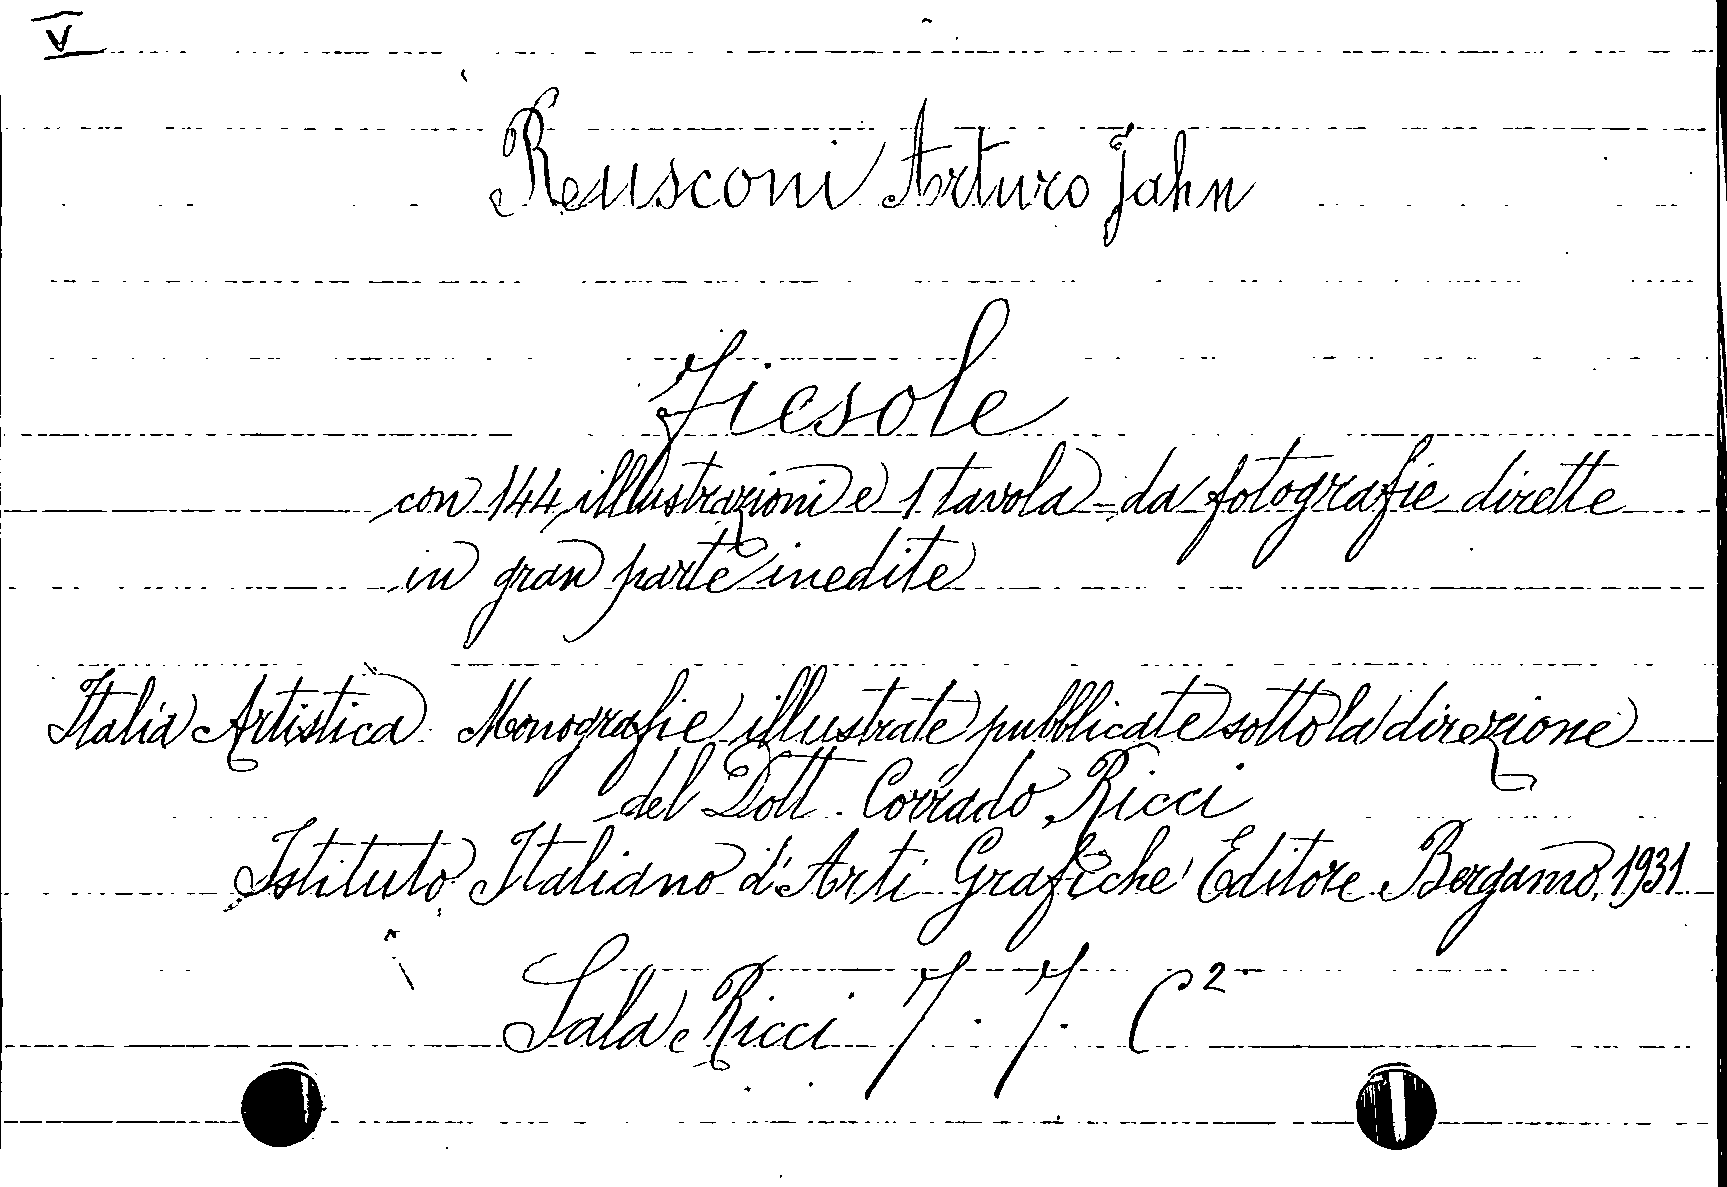 V
Rusconi Arturo Jahn
Fiesole
con 144 illustrazioni e 1 tavola da fotografie dirette
in gran parte inedite
Italia Artistica. Monografie illustrate pubblicate sotto la direzione
del Dott. Corrado Ricci
Istituto Italiano d'Arti Grafiche Editore Bergamo, 1931
Sala Ricci F. F. C²